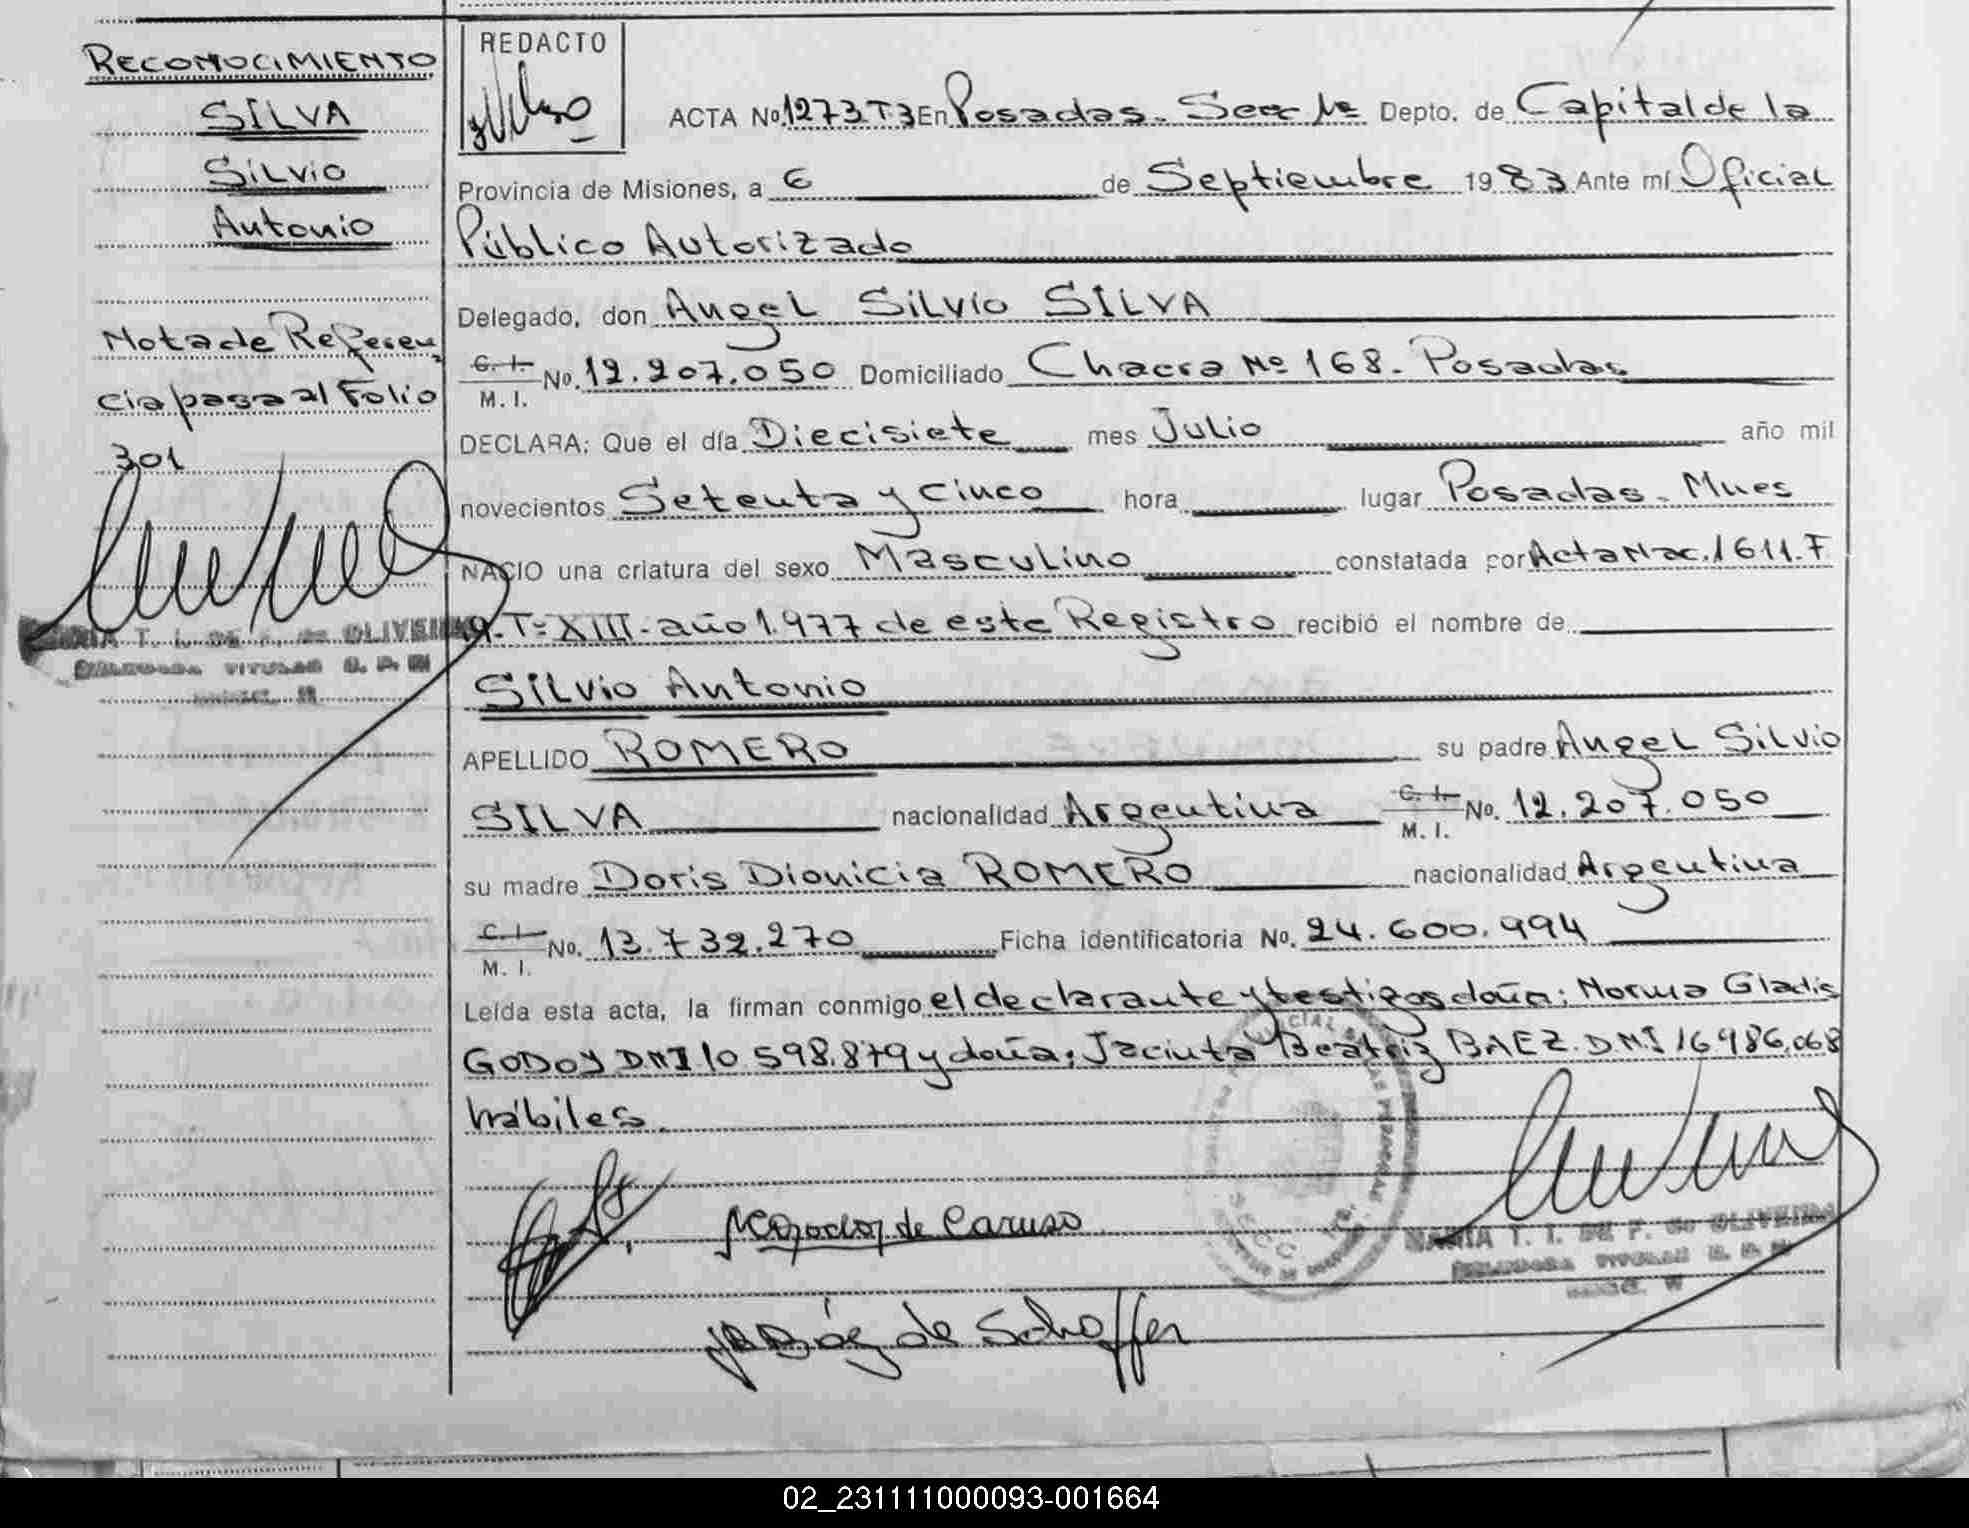 RECONOCIMIENTO
SILVA
Silvio
Antonio
Nota de Referen
cia pasa al Folio
301
MARIA T. I. DE F. de OLIVEIRA
TITULAR
REDACTO
ACTA No. 1273 T3 En Posadas. Secc 1ra Depto. de Capital de la
Provincia de Misiones, a 6 de Septiembre 1983 Ante mí Oficial
Público Autorizado
Delegado, don Angel Silvio SILVA
C. I. M. I. No. 12.207.050 Domiciliado Chacra Nº 168. Posadas
DECLARA: Que el día Diecisiete mes Julio año mil
novecientos Setenta y Cinco hora lugar Posadas. Mnes
NACIO una criatura del sexo Masculino constatada por Acta Nac. 1611. F
9. Tº XIII. año 1.977 de este Registro recibió el nombre de
Silvio Antonio
APELLIDO ROMERO su padre Angel Silvio
SILVA nacionalidad Argentina C. I. M. I. No. 12.207.050
su madre Doris Dionicia ROMERO nacionalidad Argentina
C. I. M. I. No. 13.732.270 Ficha identificatoria No. 24.600.994
Leída esta acta, la firman conmigo el declarante y testigos doña: Norma Gladis
GODOY DNI 10.598.879 y doña: Jacinta Beatriz BAEZ. DNI 16986.068
hábiles.
de Caruso
de Schaffer
MARIA T. I. DE F. de OLIVEIRA
TITULAR
02_231111000093-001664